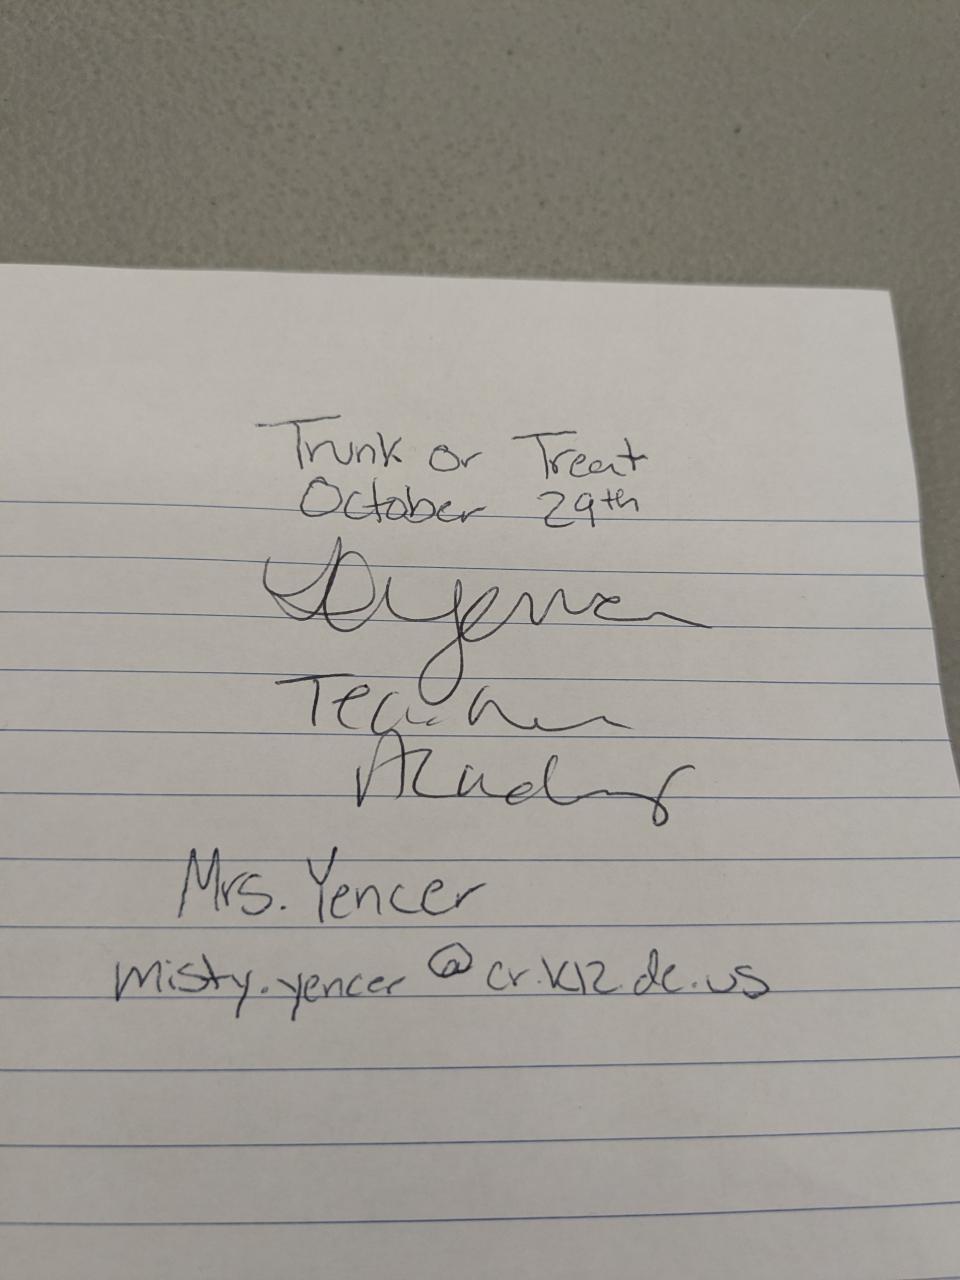 Trunk or Treat
October 29th
Yencer
Teacher
Academy
Mrs. Yencer
misty.yencer@cr.k12.de.us